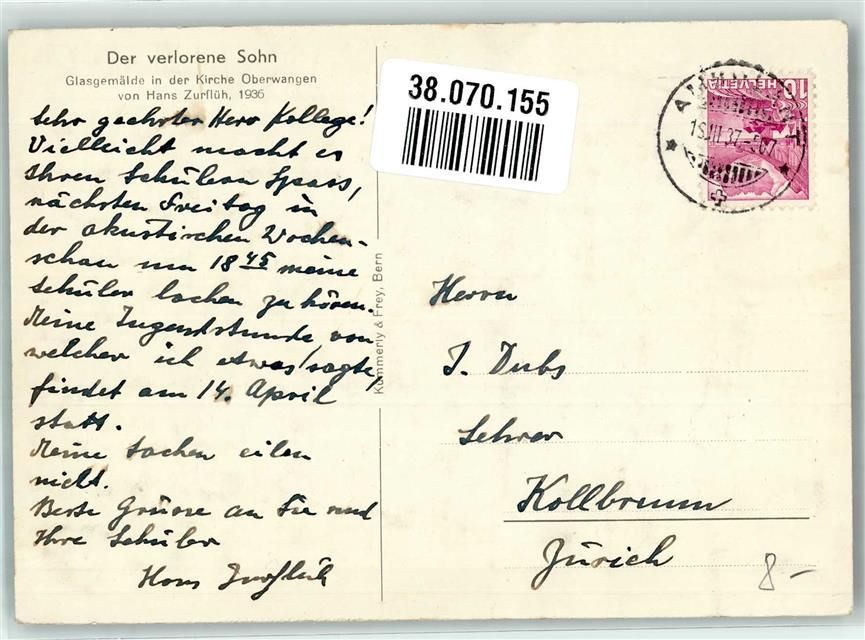 Der verlorene Sohn
Glasgemälde in der Kirche Oberwangen
von Hans Zurflüh, 1936
Sehr geehrter Herr Kollege!
Vielleicht macht es
Ihren Schülern Spass,
nächsten Freitag in
der akustischen Wochen-
schau um 18 45 meine
Schüler lachen zu hören.
Meine Jugendstunde von
welcher ich etwas sagte,
findet am 14. April
statt.
Meine Sachen eilen
nicht.
Beste Grüsse an Sie und
Ihre Schüler
Hans Zurflüh
Kümmerly & Frey, Bern
38.070.155
10
HELVETIA
Herrn
J. Dubs
Lehrer
Kollbrunn
Zürich
8-